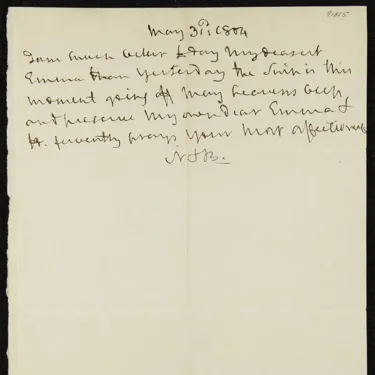 May 31st: 1804
I am much better to day my dearest
Emma than yesterday the Ship is this
moment going off May heavens keep
and preserve My own dear Emma &
fervently prays Your most affectionate
N & B.